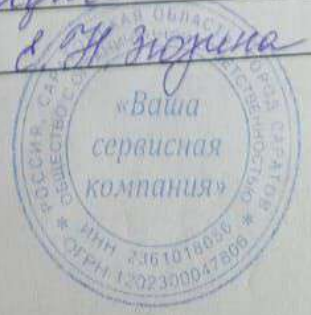 Е. Н. Зюзина
РОССИЯ, САРАТОВСКАЯ ОБЛАСТЬ, ГОРОД САРАТОВ *
ОБЩЕСТВО С ОГРАНИЧЕННОЙ ОТВЕТСТВЕННОСТЬЮ
«Ваша
сервисная
компания»
ИНН 2361018056
* ОГРН 1202300047806 *